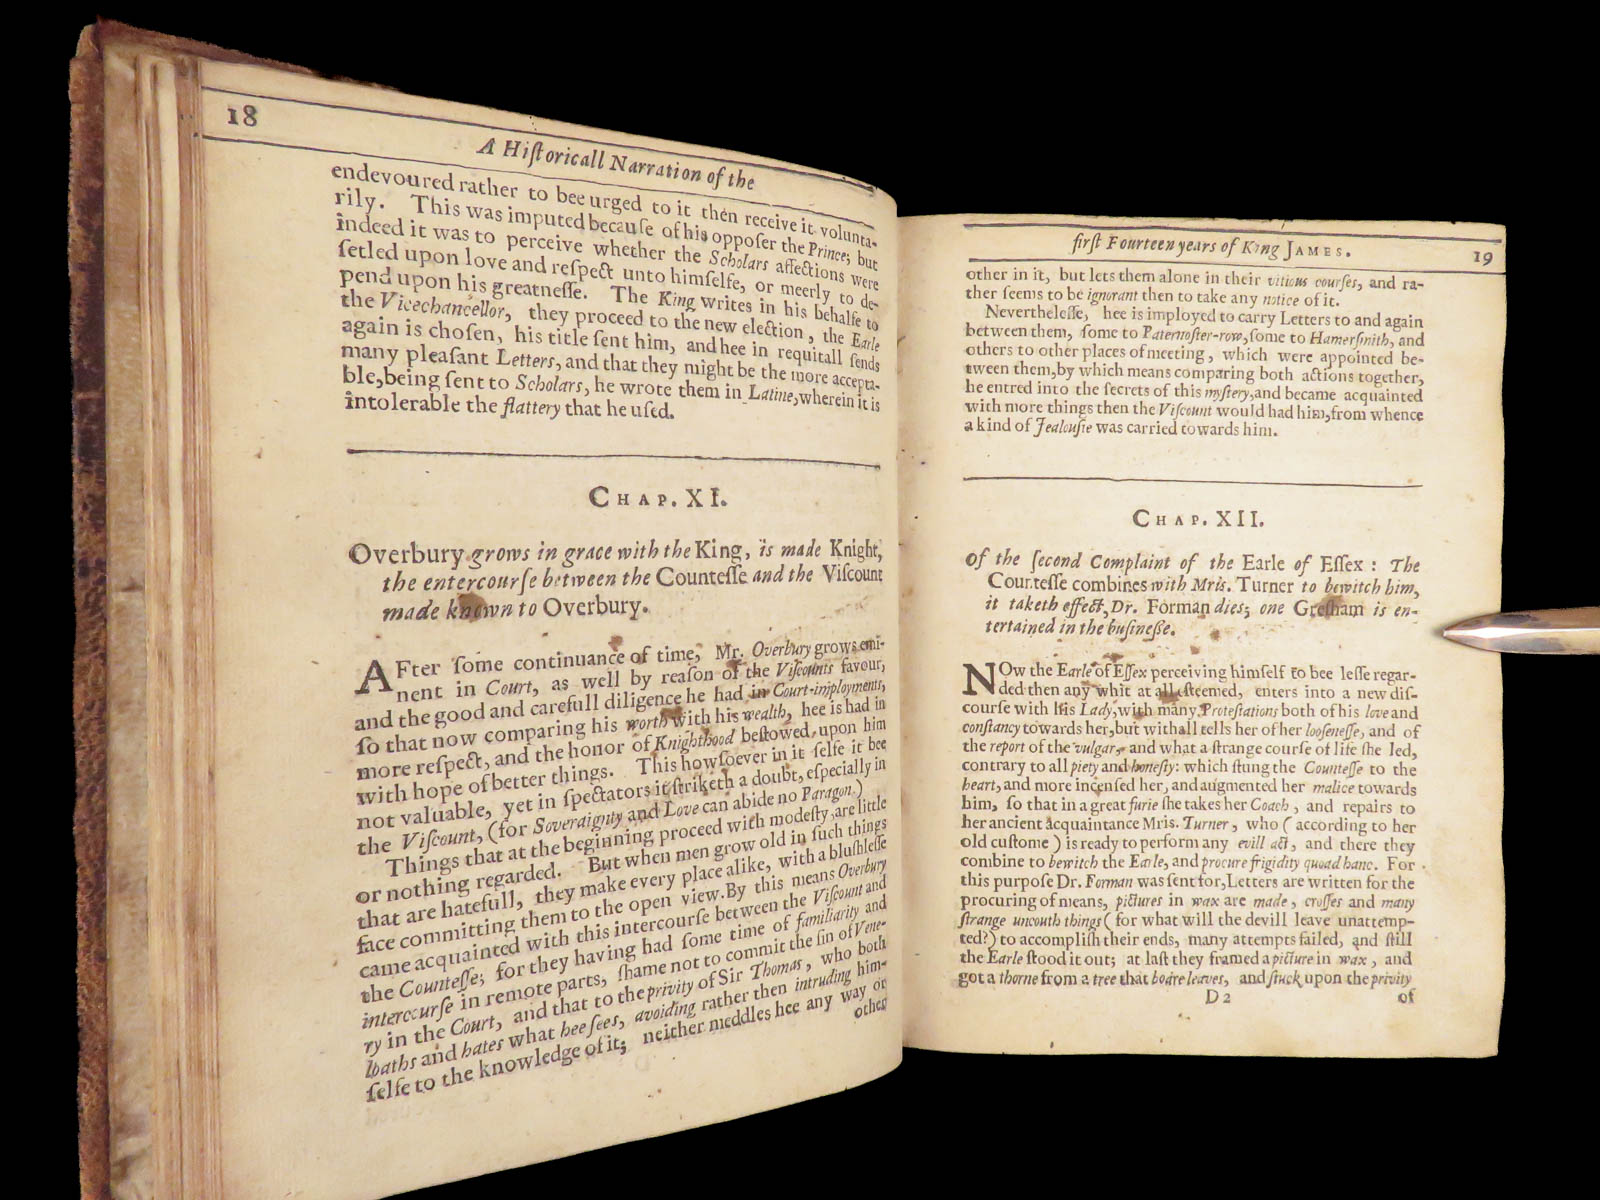 18
A Hiſtoricall Narration of the
endevoured rather to bee urged to it then receive it volunta-
rily. This was imputed becauſe of his oppoſer the Prince; but
indeed it was to perceive whether the Scholars affections were
ſetled upon love and reſpect unto himſelfe, or meerly to de-
pend upon his greatneſſe. The King writes in his behalfe to
the Vicechancellor, they proceed to the new election, the Earle
again is choſen, his title ſent him, and hee in requitall ſends
many pleaſant Letters, and that they might be the more accepta-
ble, being ſent to Scholars, he wrote them in Latine, wherein it is
intolerable the flattery that he uſed.
CHAP. XI.
Overbury grows in grace with the King, is made Knight,
the entercourſe between the Counteſſe and the Viſcount
made known to Overbury.
AFter ſome continuance of time, Mr. Overbury grows emi-
nent in Court, as well by reaſon of the Viſcounts favour,
and the good and carefull diligence he had in Court-imployments,
ſo that now comparing his worth with his wealth, hee is had in
more reſpect, and the honor of Knighthood beſtowed upon him
with hope of better things. This howſoever in it ſelfe it bee
not valuable, yet in ſpectators it ſtriketh a doubt, eſpecially in
the Viſcount, (for Soveraignty and Love can abide no Paragon.)
Things that at the beginning proceed with modeſty, are little
or nothing regarded. But when men grow old in ſuch things
that are hatefull, they make every place alike, with a bluſhleſſe
face committing them to the open view. By this means Overbury
came acquainted with this intercourſe between the Viſcount and
the Counteſſe; for they having had ſome time of familiarity and
intercourſe in remote parts, ſhame not to commit the ſin of Vene-
ry in the Court, and that to the privity of Sir Thomas, who both
loaths and hates what hee ſees, avoiding rather then intruding him-
ſelfe to the knowledge of it; neither meddles hee any way or
other
firſt Fourteen years of King JAMES.
19
other in it, but lets them alone in their vitious courſes, and ra-
ther ſeems to be ignorant then to take any notice of it.
Nevertheleſſe, hee is imployed to carry Letters to and again
between them, ſome to Paternoſter-row, ſome to Hamerſmith, and
others to other places of meeting, which were appointed be-
tween them, by which means comparing both actions together,
he entred into the ſecrets of this myſtery, and became acquainted
with more things then the Viſcount would had him, from whence
a kind of Jealouſie was carried towards him.
CHAP. XII.
Of the ſecond Complaint of the Earle of Eſſex: The
Counteſſe combines with Mris. Turner to bewitch him,
it taketh effect, Dr. Forman dies; one Greſham is en-
tertained in the buſineſſe.
NOw the Earle of Eſſex perceiving himſelf to bee leſſe regar-
ded then any whit at all eſteemed, enters into a new diſ-
courſe with his Lady, with many Proteſtations both of his love and
conſtancy towards her, but withall tells her of her looſeneſſe, and of
the report of the vulgar, and what a ſtrange courſe of life ſhe led,
contrary to all piety and honeſty: which ſtung the Counteſſe to the
heart, and more incenſed her, and augmented her malice towards
him, ſo that in a great furie ſhe takes her Coach, and repairs to
her ancient acquaintance Mris. Turner, who (according to her
old cuſtome) is ready to perform any evill act, and there they
combine to bewitch the Earle, and procure frigidity quoad hanc. For
this purpoſe Dr. Forman was ſent for, Letters are written for the
procuring of means, pictures in wax are made, croſſes and many
ſtrange uncouth things (for what will the devill leave unattemp-
ted?) to accompliſh their ends, many attempts failed, and ſtill
the Earle ſtood it out; at laſt they framed a picture in wax, and
got a thorne from a tree that boare leaves, and ſtuck upon the privity
D 2
of